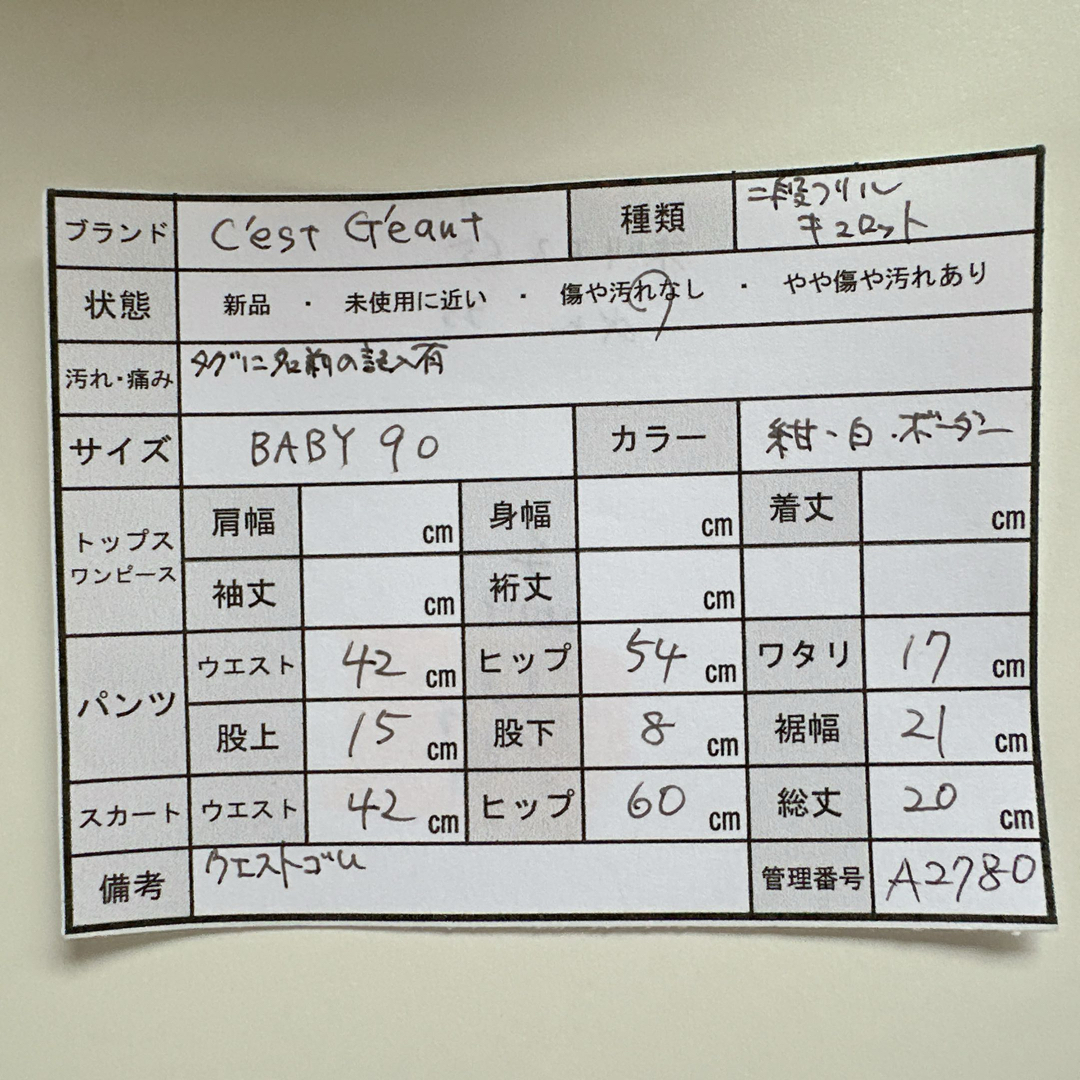 ブランド C'est Géaut 種類 二段フリル
キュロット
状態 新品 ・ 未使用に近い ・ 傷や汚れなし ・ やや傷や汚れあり
汚れ・痛み タグに名前の記入有
サイズ BABY 90 カラー 紺・白・ボーダー
トップス
ワンピース
肩幅 cm 身幅 cm 着丈 cm
袖丈 cm 裄丈 cm
パンツ
ウエスト 42 cm ヒップ 54 cm ワタリ 17 cm
股上 15 cm 股下 8 cm 裾幅 21 cm
スカート ウエスト 42 cm ヒップ 60 cm 総丈 20 cm
備考 ウエストゴム 管理番号 A2780